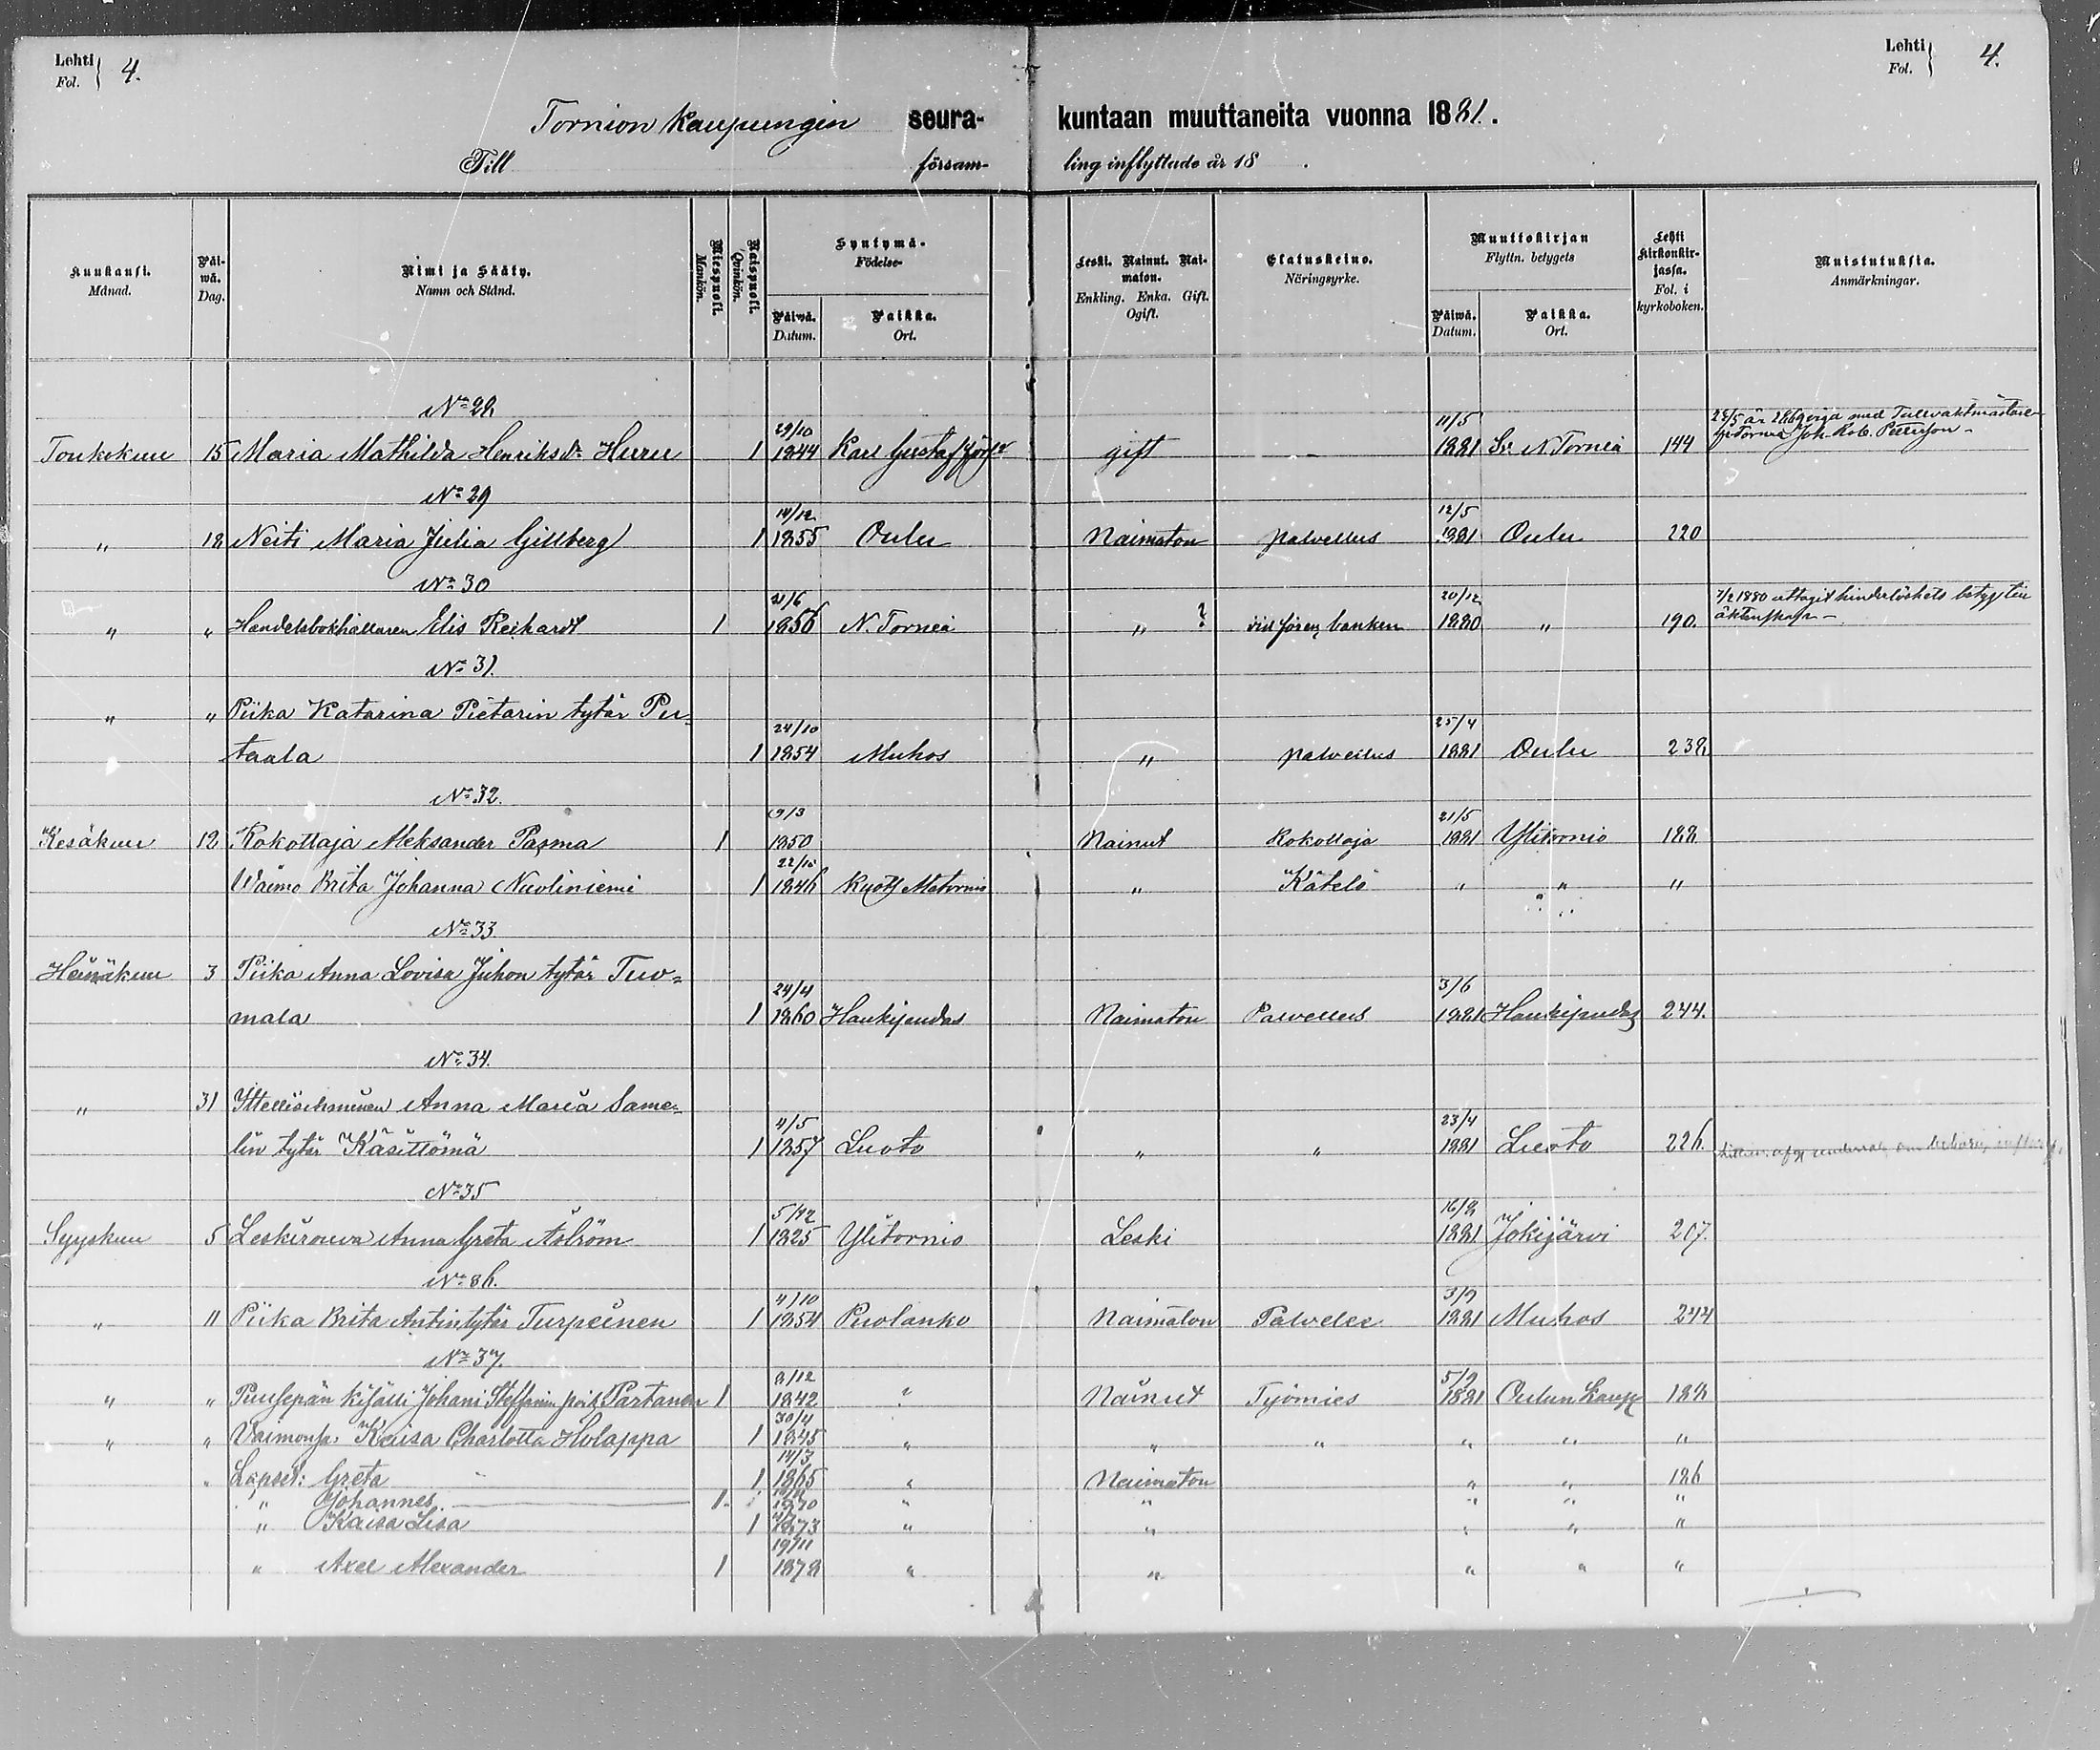 Lehti
Fol. } 4.
Lehti
Fol. } 4.
Tornion kaupungin seura- kuntaan muuttaneita vuonna 1881.
Till församling inflyttade år 18 .
Kuukausi. Månad.
Päiwä. Dag.
Nimi ja Sääty. Namn och Stånd.
Miespuoli. Mankön.
Naispuoli. Qvinkön.
Syntymä- Födelse-
Päiwä. Datum.
Paikka. Ort.
Leski. Nainut. Naimaton. Enkling. Enka. Gift. Ogift.
Elatuskeino. Näringsyrke.
Muuttokirjan Flyttn. betygets
Päiwä. Datum.
Paikka. Ort.
Lehti kirkonkirjassa. Fol. i kyrkoboken.
Muistutuksia. Anmärkningar.
No 28
Toukokuu 15 Maria Mathilda Henriksdr Huru 1 29/10 1844 Karl Gustafs förs. gift - 11/5 1881 Sv. N Torneå 144
No 29
" 18 Neiti Maria Julia Gillberg 1 14/12 1855 Oulu Naimaton palvellus 12/5 1881 Oulu 220
No 30
" " Handelsbokhållaren Elis Reikardt 1 21/6 1856 N. Torneå " ? vid fören. banken 20/12 1880 " 190. 7/2 1880 uttagit hinderlöshets betyg till äktenskap -
No 31.
" " Piika Katarina Pietarin tytär Pu-
taala 1 24/10 1854 Muhos " palvellus 25/4 1881 Oulu 238
No 32.
Kesäkuu 12 Kokottaja Aleksander Pasma 1 9/3 1850 Nainut Kokottaja 21/5 1881 Ylitornio 188
Waimo Brita Johanna Nuoliniemi 1 1846 Matornio " Kätelö " " "
No 33
Heinäkuu 3 Piika Anna Lovisa Juhon tytär Tuo-
mala 1 24/4 1860 Haukipudas Naimaton Palvellus 3/6 1881 Haukipudas 244.
No 34.
" 31 Itsellisihminen Anna Maria Same-
lin tytär Käsittömä 1 4/5 1857 Luoto " " 23/4 1881 Luoto 226.
No 35
Syyskuu 5 Leskirouva Anna Greta Åström 1 5/12 1825 Ylitornio Leski 16/8 1881 Jokijärvi 207.
No 36.
" 11 Piika Brita Antintytär Turpeinen 1 4/10 1854 Puolanko Naimaton Palvelee 3/9 1881 Muhos 244
No 37.
" " Puusepän kisälli Johani Steffanin poik. Partanen 1 8/12 1842 ? Nainut Työmies 5/9 1881 Oulun kaup 188
" " Vaimonsa Kaisa Charlotta Holappa 1 30/4 1845 " " " " " "
" Lapset: Greta 1 14/3 1865 " Naimaton " " 186
" Johannes 1 1870 " " " " "
" Kaisa Lisa 1 1873 " " " " "
" Axel Alexander 1 19/11 1878 " " " " "